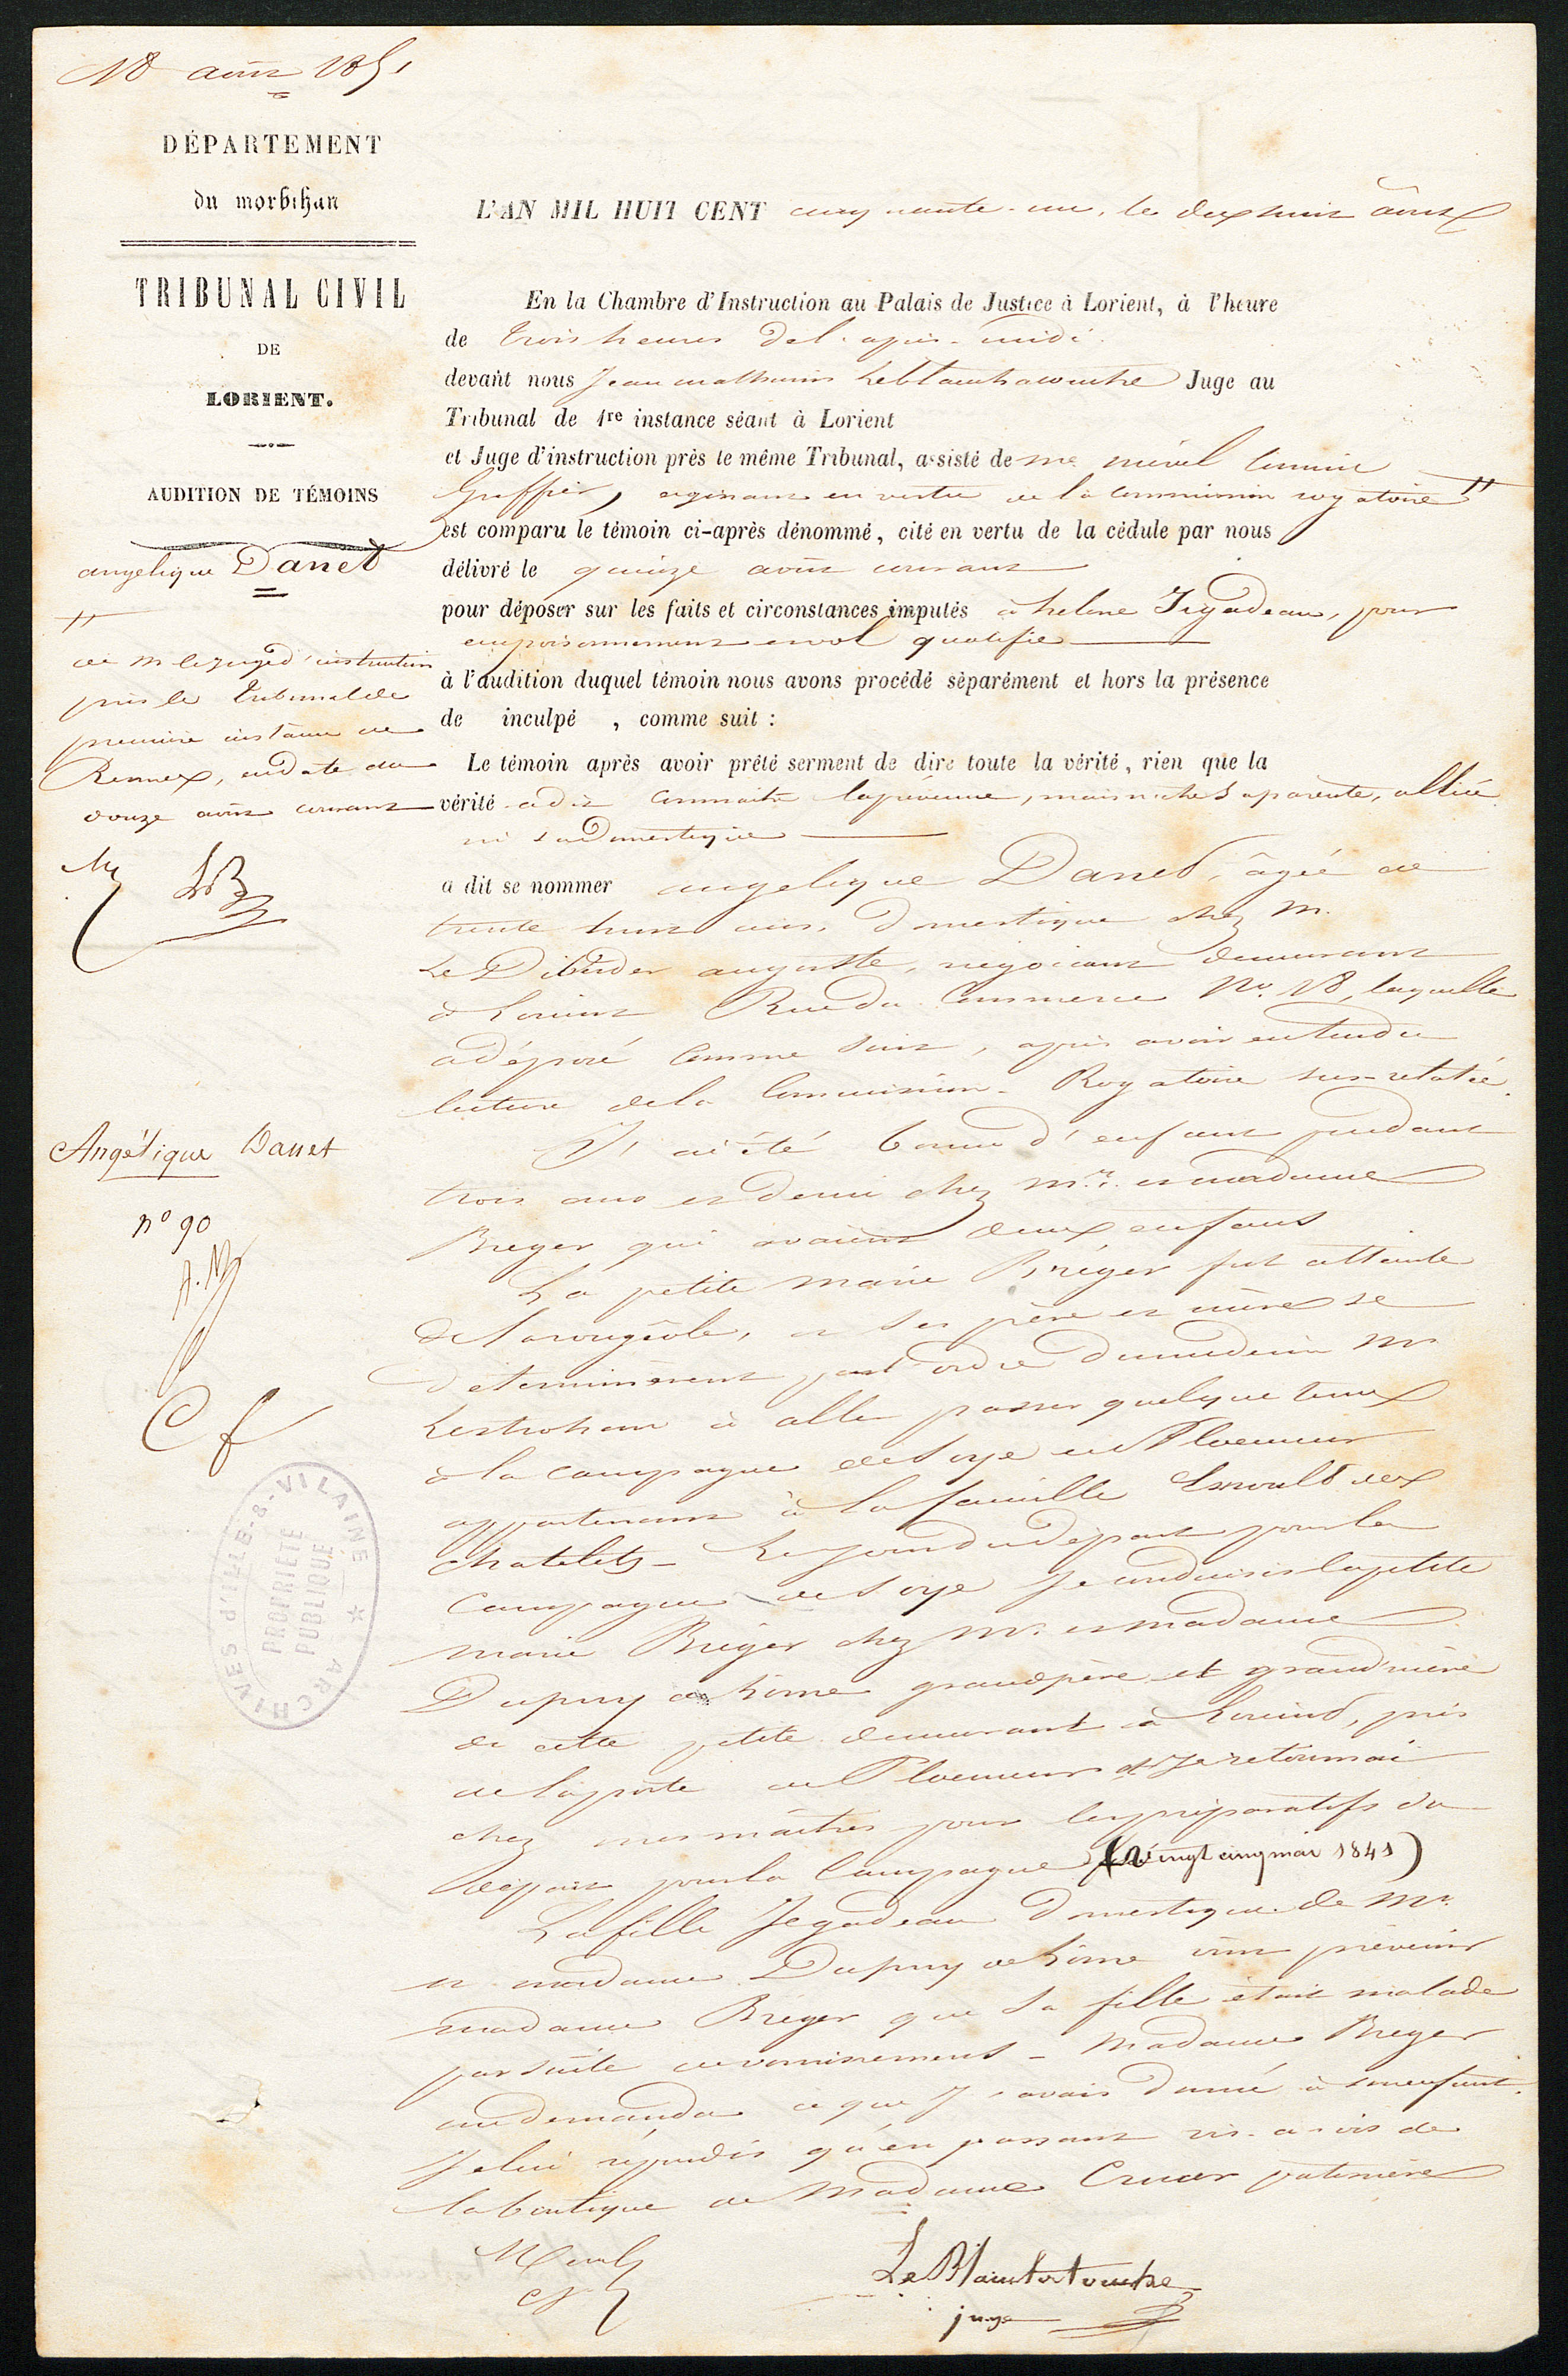 18 août 1851
DÉPARTEMENT
du morbihan
TRIBUNAL CIVIL
DE
LORIENT.
AUDITION DE TÉMOINS
angelique Danet
#
de m le juge d'instruction
près le tribunal de
première instance de
Rennes, en date du
douze août courant
LB
Angélique Danet
n° 90
C f
ARCHIVES d'ILLE-&-VILAINE
PROPRIÉTÉ
PUBLIQUE
L'AN MIL HUIT CENT cinquante-un, le dix huit août
En la Chambre d'Instruction au Palais de Justice à Lorient, à l'heure
de trois heures de l'après-midi
devant nous Jean mathurin Leblanchatouche Juge au
Tribunal de 1re instance séant à Lorient
et Juge d'instruction près le même Tribunal, assisté de me commis
Greffier, agissant en vertu de la commission rogatoire #
est comparu le témoin ci-après dénommé, cité en vertu de la cédule par nous
délivré le quinze août courant
pour déposer sur les faits et circonstances imputés à helene Jégadeau, pour
empoisonnement et vol qualifié
à l'audition duquel témoin nous avons procédé séparément et hors la présence
de inculpé , comme suit :
Le témoin après avoir prêté serment de dire toute la vérité, rien que la
vérité a dit connaitre la prévenue, mais n'être sa parente, alliée
ni sa domestique
a dit se nommer angelique Danet, âgée de
trente huit ans, domestique chez m.
Le Dibérder auguste, négociant demeurant
à Lorient Rue du Commerce No. 18, laquelle
a déposé comme suit, après avoir entendu
lecture de la Commission Rogatoire sus-relatée.
J'ai été bonne d'enfant pendant
trois ans et demi chez mr. et madame
Breger qui avaient deux enfants
La petite marie Bréger fut atteinte
de la rougéole, et ses père et mère se
déterminèrent par l'ordre du médecin mr
Lestrohan à aller passer quelque temps
à la campagne de Soye en Ploemeur
appartenant à la famille Esnoult des
chatelets - Le jour du départ pour la
campagne de Soye je conduisis la petite
marie Bréger chez mr. et madame
Dupuy de Lôme grandpère et grand'mère
de cette petite demeurant à Lorient, près
de la porte de Ploemeur et je retournai
chez mes maîtres pour les préparatifs du
départ pour la Campagne (vingt cinq mai 1841)
La fille Jegadeau domestique de Mr.
et madame Dupuy de Lôme vint prévenir
madame Bréger que sa fille était malade
par suite de vomissements - Madame Breger
me demanda ce que j'avais donné à son enfant.
Je lui répondis qu'en passant vis-à-vis de
la boutique de Madame
Le Blanchatouche
juge